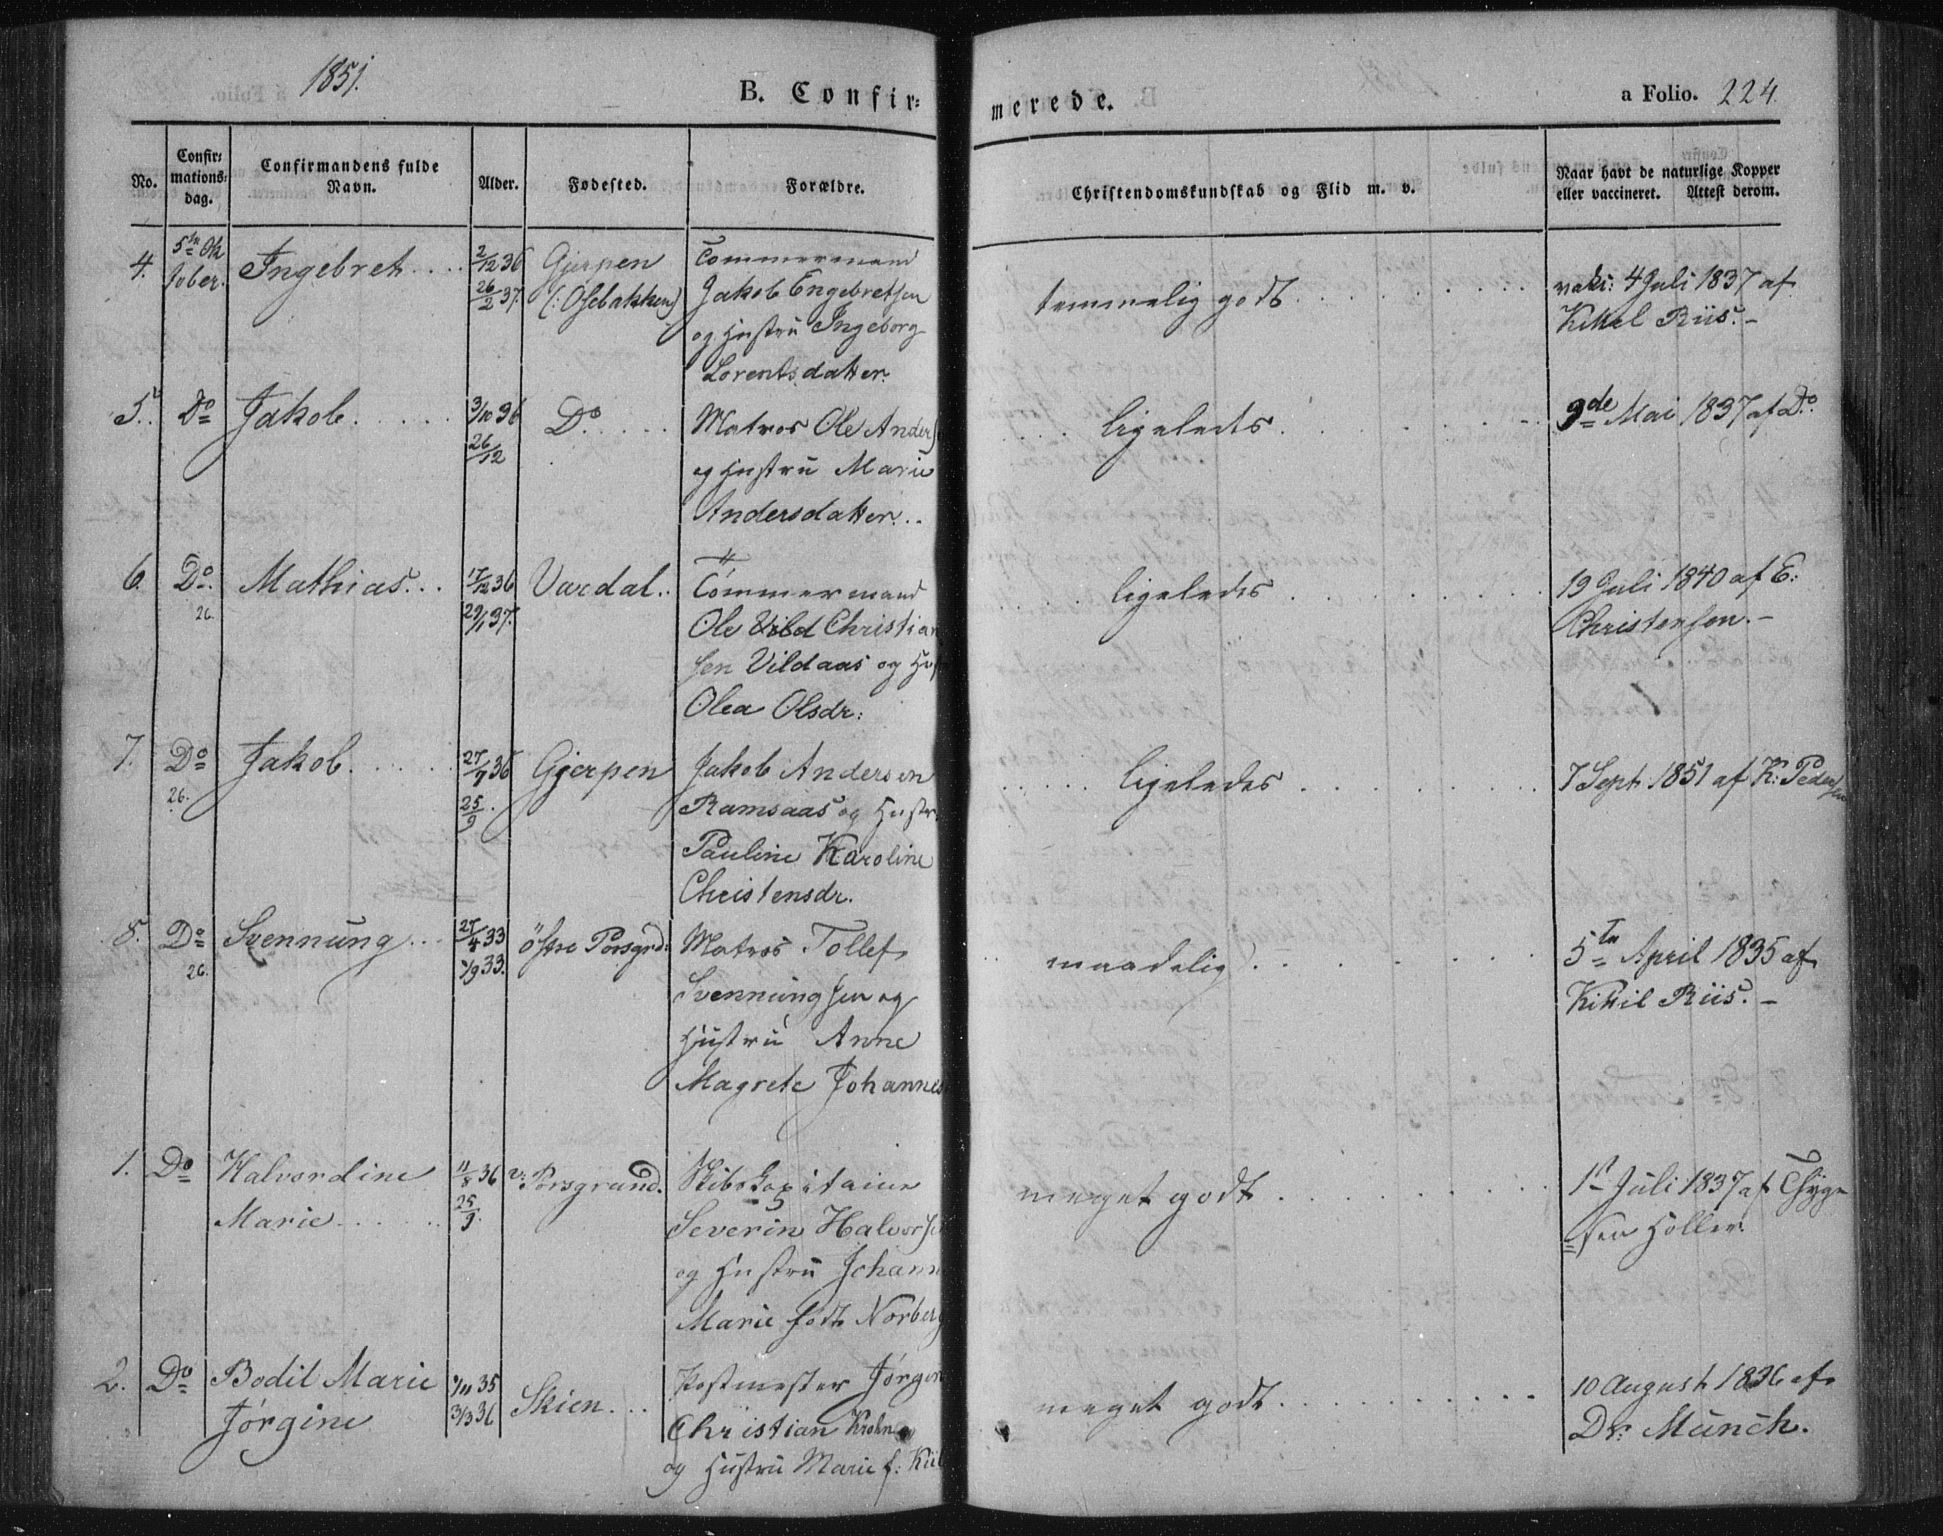 1851.
B. Confir=
merede.
a Folio. 224.
No.
Confir=
mations=
dag.
Confirmandens fulde
Navn.
Alder.
Fødested.
Forældre.
Christendomskundskab og Flid m. v.
Naar havt de naturlige Kopper
eller vaccineret. Attest derom.
4. 5te Ok
tober. Ingebret . . . . 2/12 36
26/2 37. Gjerpen
(: Osebakken) Tømmermand
Jakob Engebretsen
og Hustru Ingeborg
Lorentsdatter.
temmelig godt . . . . . . . . .
vaks: 4 Juli 1837 af
Kittel Riis. –
5. Do Jakob . . . . . 3/10 36
26/12 Do . . . . . Matros Ole Anders
og Hustru Marie
Andersdatter. . .
. . . . ligeledes . . . . . . . .
9de Mai 1837 af Do.
6. Do.
26. Mathias. . . 17/12 36
29/1 37. Vardal. . Tømmermand
Ole Vild Christian
sen Vildaas og Hus
Olea Olsdr:
. . . . . ligeledes . . . . . . . . .
19 Juli 1840 af E:
Christensen. –
7. Do
26. Jakob . . . . . 27/7 36
25/9 . Gjerpen Jakob Andersen
Ramsaas og Hustr
Pauline Karoline
Christensdr.
. . . . . ligeledes . . . . . . . . .
7 Sept. 1851 af K: Peder
sen
8. Do
26. Svennung. . . 27/4 33
/9 33. östre Porsgrd: Matros Tollef
Svennungsen og
Hustru Anne
Magrete Johannes
. . maadelig . . . . . . . . .
5te April 1835 af
Kittil Riis. –
1. Do Halvordine
Marie . . . . . 11/8 36
25/9. v: Porsgrund. Skibskapitaine
Severin Halvorse
og Hustru Johann
Marie født Norberg
meget godt . . . . . . . . .
1st Juli 1837 af Thyge
sen Holler.
2. Do Bodil Marie
Jørgine /11 35
3/3 36 Skien. . . Postmester Jørgen
Christian Krohn
og Hustru Marie f: Kiil
meget godt . . . . . . . . .
10 August 1836 af
Dr: Münch.